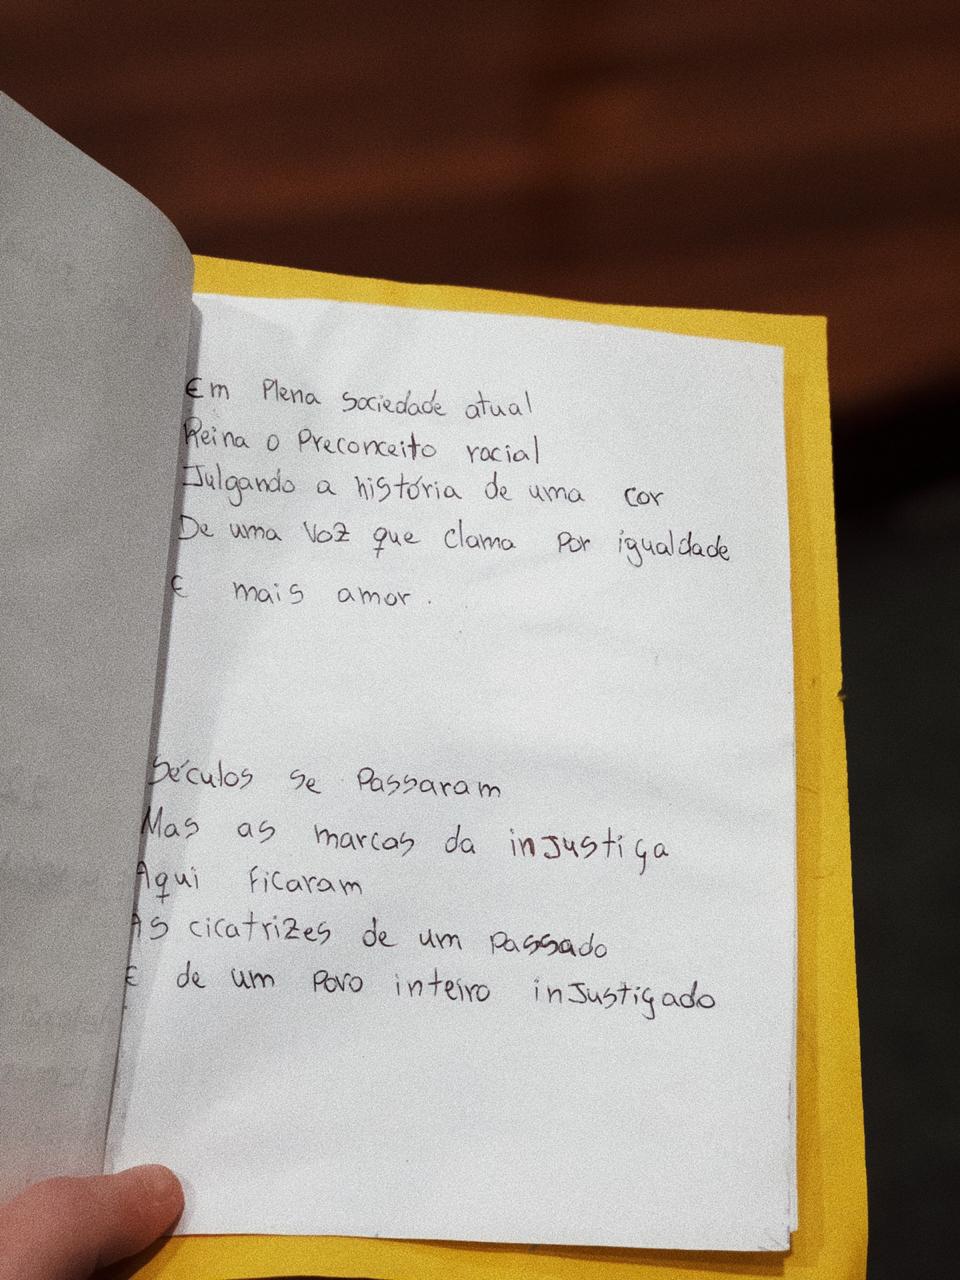 Em Plena sociedade atual
Reina o Preconceito racial
Julgando a história de uma cor
De uma Voz que clama por igualdade
E mais amor.
Séculos se Passaram
Mas as marcas da injustiça
Aqui ficaram
As cicatrizes de um passado
E de um Povo inteiro injustiçado